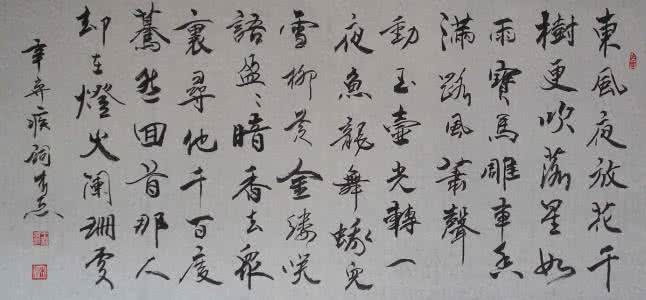 東風夜放花千
樹更吹落星如
雨寶馬雕車香
滿路風蕭聲
動玉壺光轉一
夜魚龍舞蛾兒
雪柳黄金縷咲
語盈〻暗香去眾
裏尋他千百度
驀然回首那人
却在燈火阑珊處
辛弃疾詞